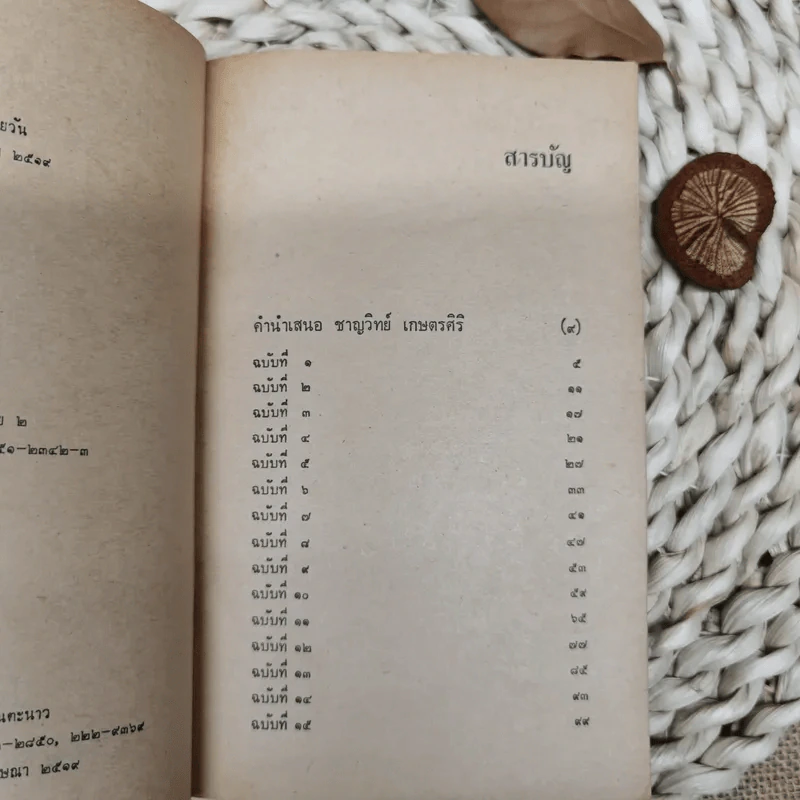 ๒๕๑๙
๒
๕๑-๒๓๔๒-๓
-๒๘๕๐, ๒๒๒-๙๓๖๙
๒๕๑๙
สารบัญ
คำนำเสนอ ชาญวิทย์ เกษตรศิริ (๙)
ฉบับที่ ๑ ๕
ฉบับที่ ๒ ๑๑
ฉบับที่ ๓ ๑๗
ฉบับที่ ๔ ๒๑
ฉบับที่ ๕ ๒๗
ฉบับที่ ๖ ๓๓
ฉบับที่ ๗ ๔๑
ฉบับที่ ๘ ๔๗
ฉบับที่ ๙ ๕๓
ฉบับที่ ๑๐ ๕๙
ฉบับที่ ๑๑ ๖๕
ฉบับที่ ๑๒ ๗๗
ฉบับที่ ๑๓ ๘๕
ฉบับที่ ๑๔ ๙๓
ฉบับที่ ๑๕ ๙๙